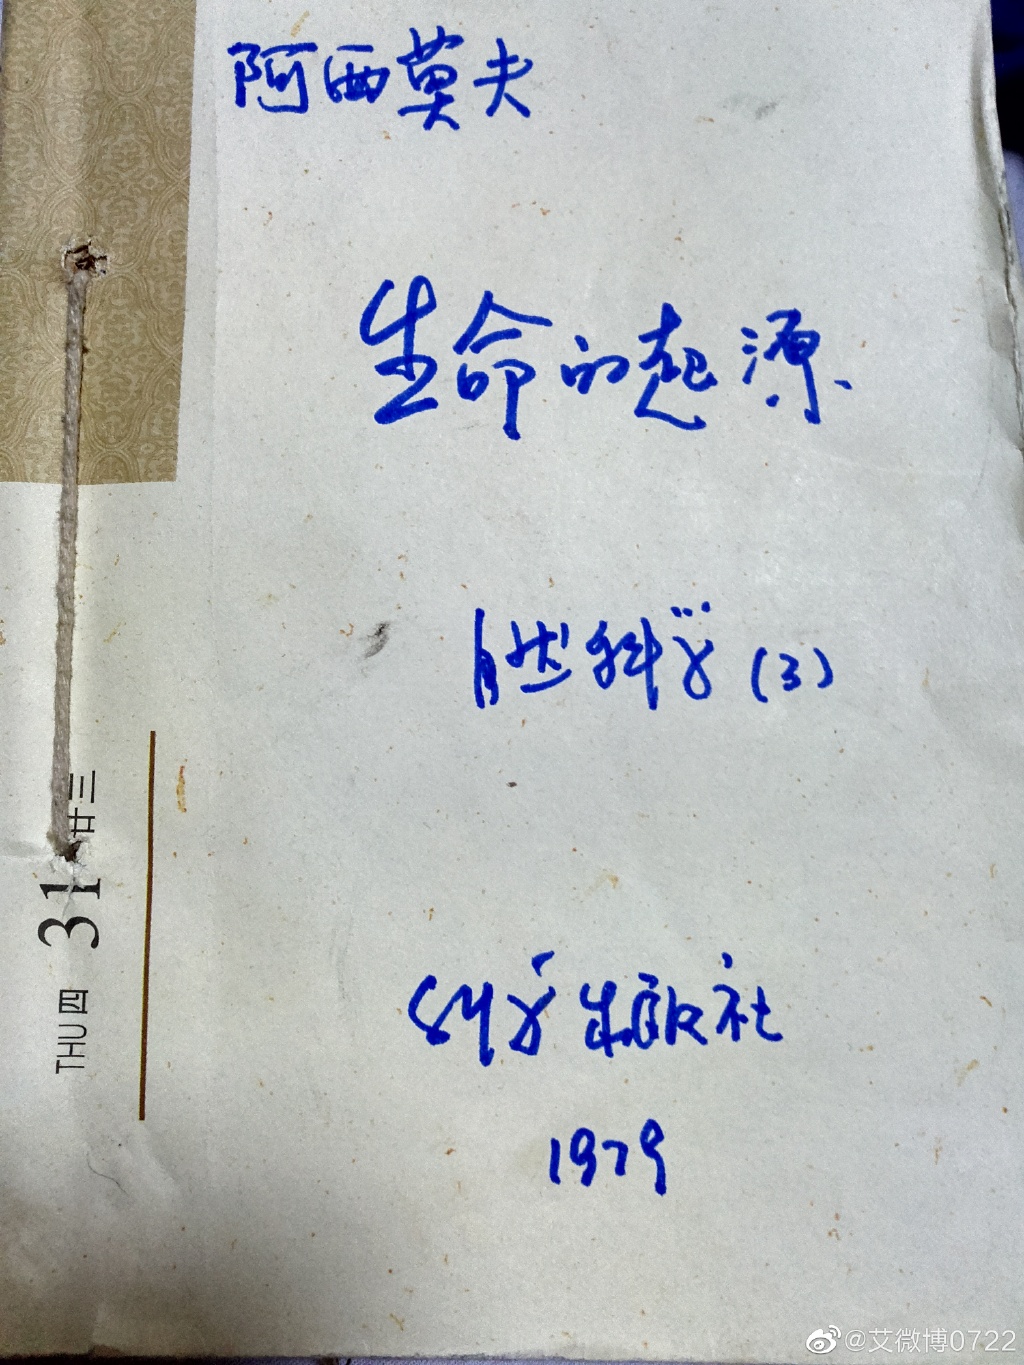 阿西莫夫
生命的起源
自然科学(3)
科学出版社
1979
廿三
31
THU 四
@艾微博0722